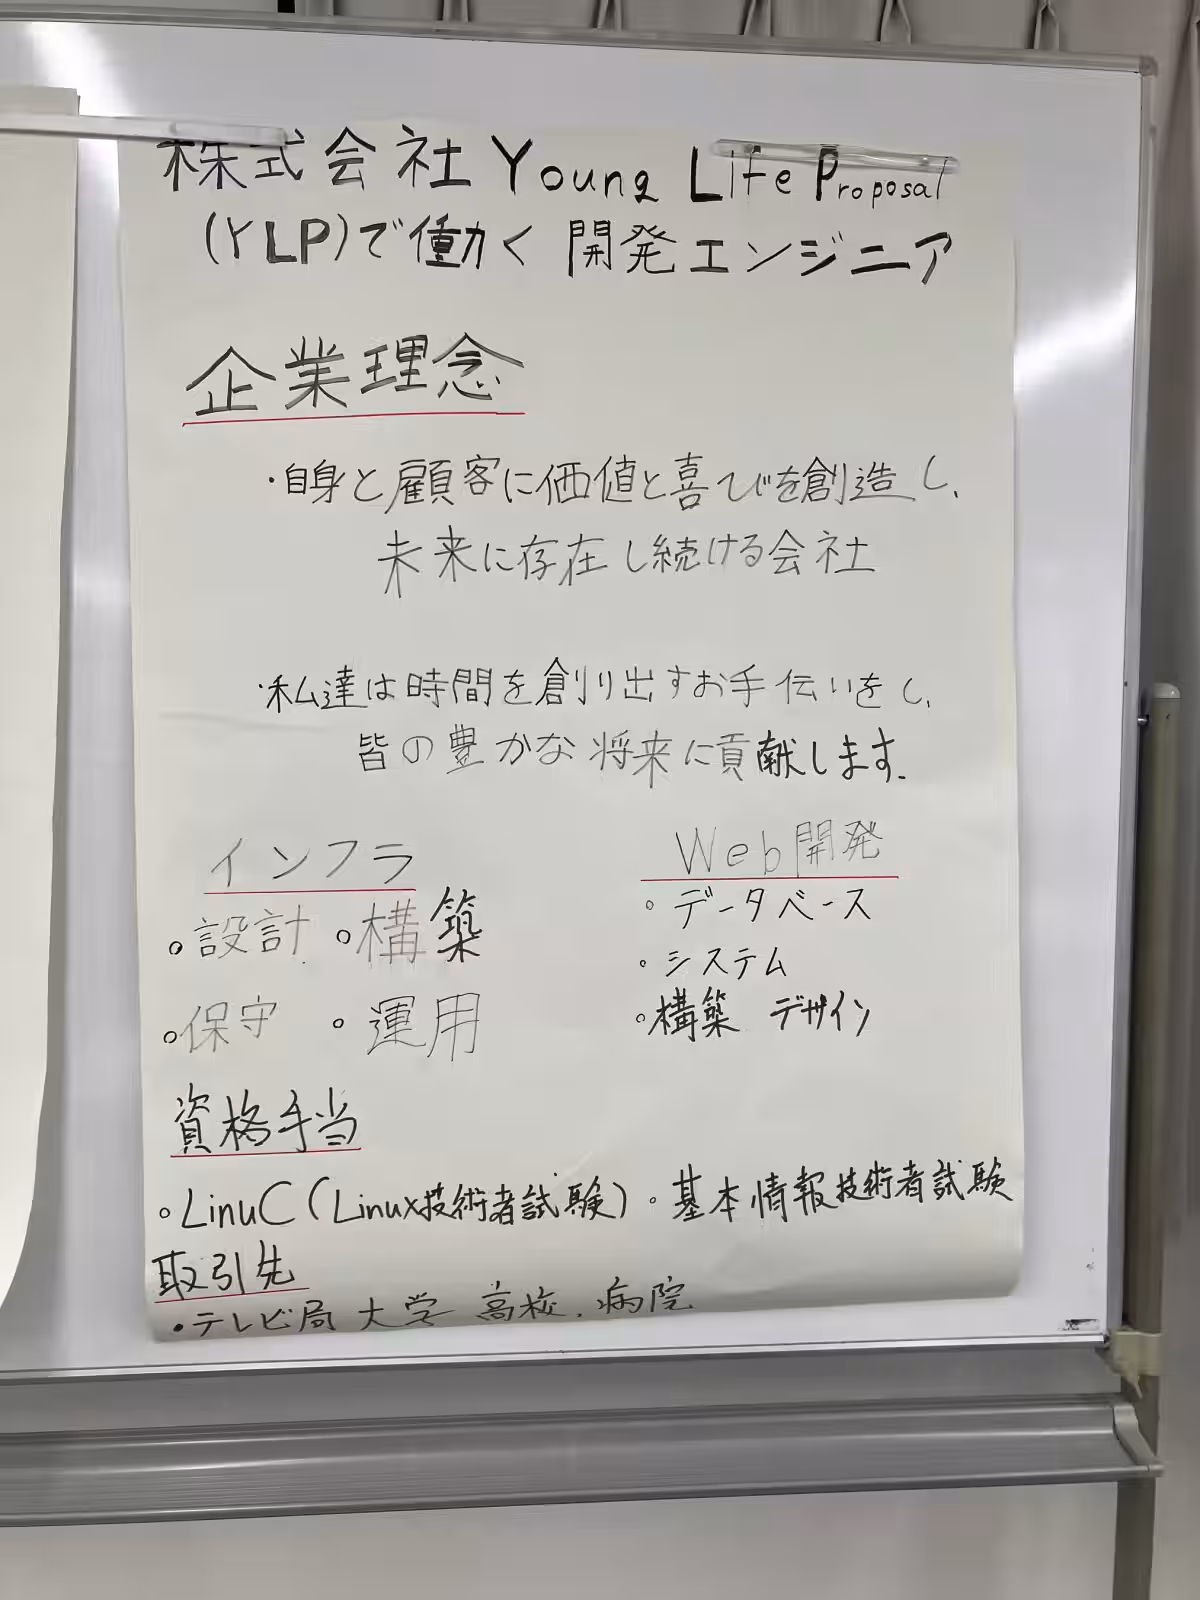 株式会社 Young Life Proposal
(YLP)で働く 開発エンジニア
企業理念
・自身と顧客に価値と喜びを創造し、
未来に存在し続ける会社
・私達は時間を創り出すお手伝いをし、
皆の豊かな将来に貢献します。
インフラ
◦設計 ◦構築
◦保守 ◦運用
Web開発
◦データベース
◦システム
◦構築 デザイン
資格手当
◦LinuC(Linux技術者試験) ◦基本情報技術者試験
取引先
・テレビ局 大学 高校、病院